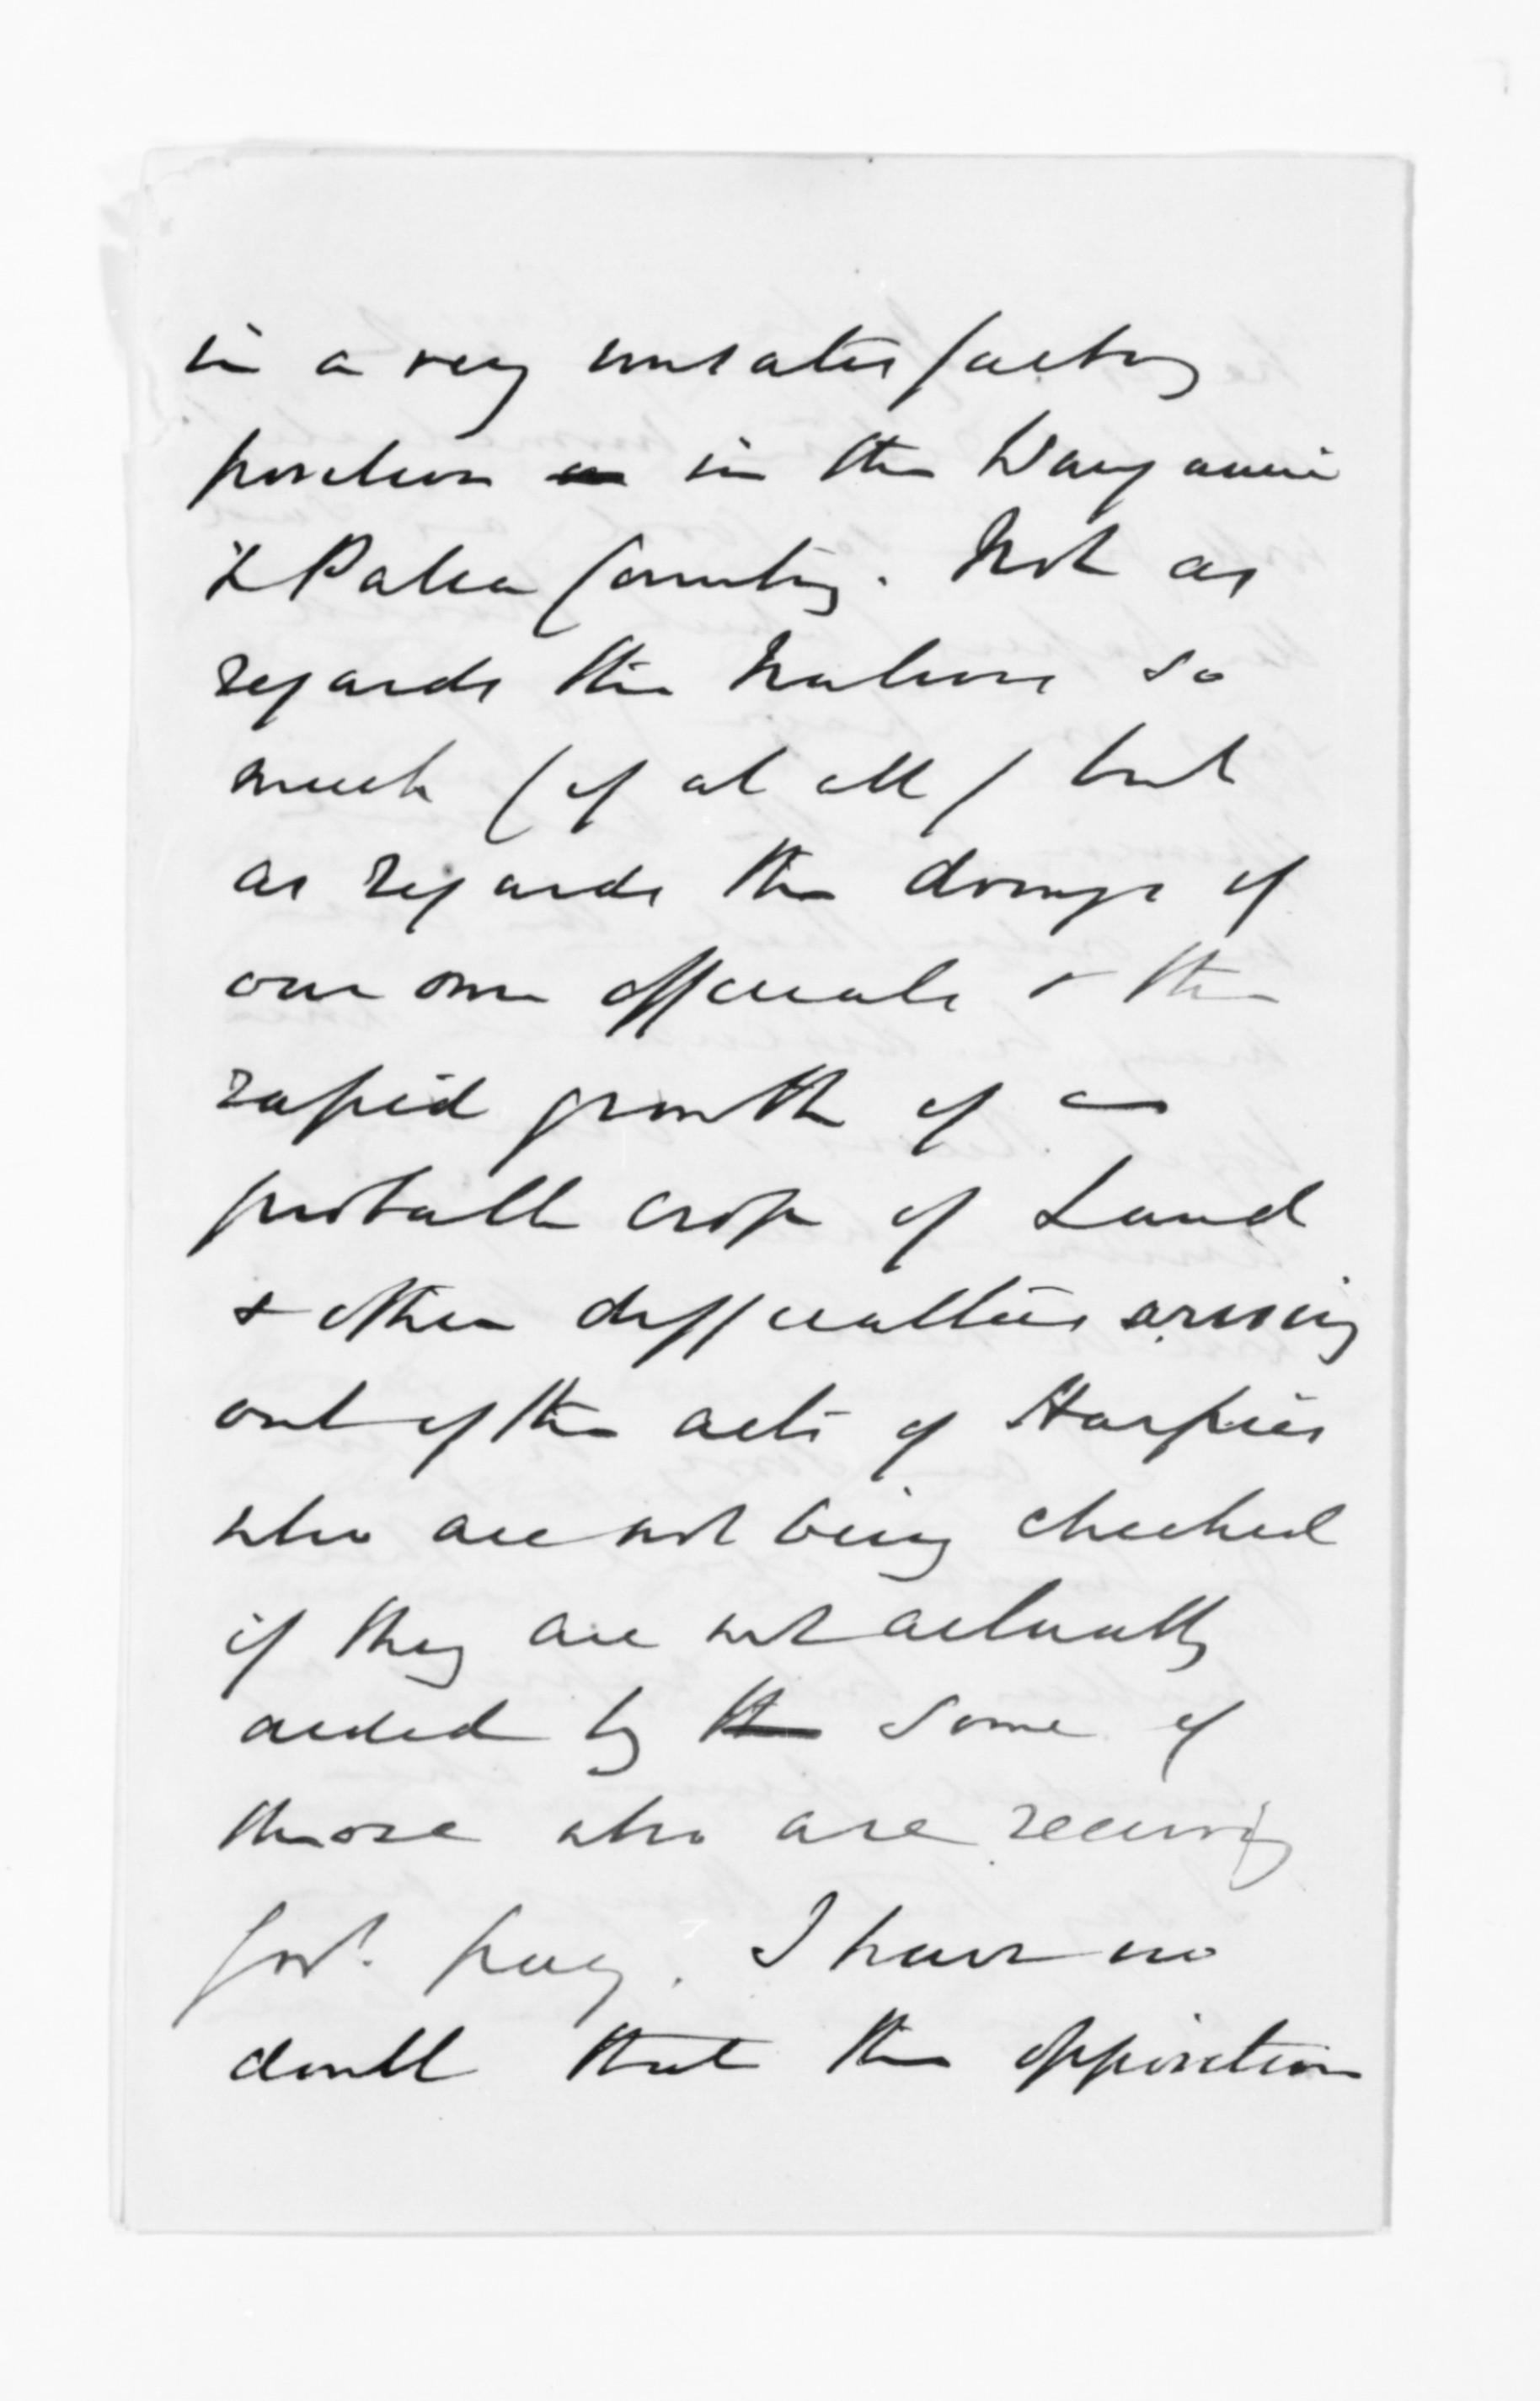 in a very unsatisfactory
position in the Wanganui
& Patea Country. Not as
regards the Natives so
much (if at all) but
as regards the doings of
our own officials & the
rapid growth of a
probable crop of Land
& other difficulties arising
out of the acts of Harpies
who are not being checked
if they are not actually
aided by the some of
those who are receiving
Govt. pay. I have no
doubt that the opposition